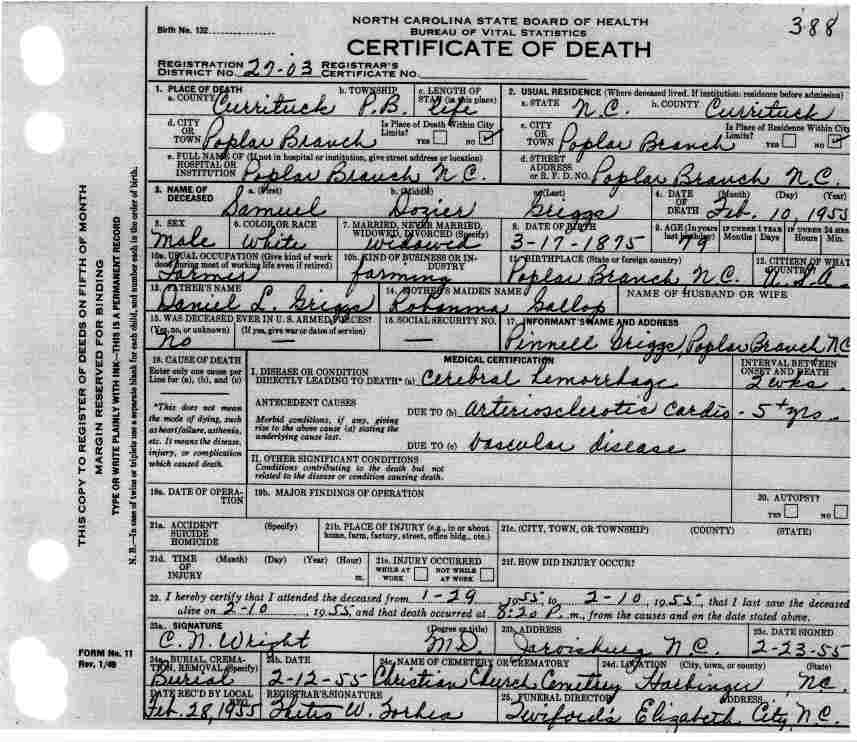 NORTH CAROLINA STATE BOARD OF HEALTH
BUREAU OF VITAL STATISTICS
CERTIFICATE OF DEATH
388
Birth No. 132
REGISTRATION DISTRICT NO. 27-03 REGISTRAR'S CERTIFICATE NO.
1. PLACE OF DEATH
a. COUNTY Currituck b. TOWNSHIP P.B c. LENGTH OF STAY (in this place) Life
2. USUAL RESIDENCE (Where deceased lived. If institution: residence before admission)
a. STATE N.C. b. COUNTY Currituck
d. CITY OR TOWN Poplar Branch Is Place of Death Within City Limits? YES NO ✓
c. CITY OR TOWN Poplar Branch Is Place of Residence Within City Limits? YES NO ✓
e. FULL NAME OF (If not in hospital or institution, give street address or location) HOSPITAL OR INSTITUTION Poplar Branch N.C.
d. STREET ADDRESS or R. F. D. NO. Poplar Branch N.C.
3. NAME OF DECEASED a. (First) Samuel b. (Middle) Dozier c. (Last) Griggs
4. DATE OF DEATH (Month) (Day) (Year) Feb. 10, 1955
5. SEX Male
6. COLOR OR RACE White
7. MARRIED, NEVER MARRIED, WIDOWED, DIVORCED (Specify) Widowed
8. DATE OF BIRTH 3-17-1875
9. AGE (In years last birthday) 79 IF UNDER 1 YEAR Months Days IF UNDER 24 HRS Hours Min.
10a. USUAL OCCUPATION (Give kind of work done during most of working life even if retired) Farmer
10b. KIND OF BUSINESS OR INDUSTRY farming
11. BIRTHPLACE (State or foreign country) Poplar Branch N.C.
12. CITIZEN OF WHAT COUNTRY? U.S.A.
13. FATHER'S NAME Daniel L. Griggs
14. MOTHER'S MAIDEN NAME Gallop
NAME OF HUSBAND OR WIFE
15. WAS DECEASED EVER IN U.S. ARMED FORCES? (Yes, no, or unknown) (If yes, give war or dates of service) No —
16. SOCIAL SECURITY NO. —
17. INFORMANT'S NAME AND ADDRESS Pinnell Griggs, Poplar Branch, NC
18. CAUSE OF DEATH
Enter only one cause per Line for (a), (b), and (c)
*This does not mean the mode of dying, such as heart failure, asthenia, etc. It means the disease, injury, or complication which caused death.
MEDICAL CERTIFICATION
INTERVAL BETWEEN ONSET AND DEATH
I. DISEASE OR CONDITION DIRECTLY LEADING TO DEATH* (a) Cerebral hemorrhage 2 wks.
ANTECEDENT CAUSES
Morbid conditions, if any, giving rise to the above cause (a) stating the underlying cause last.
DUE TO (b) arteriosclerotic cardio- 5+ yrs
DUE TO (c) vascular disease
II. OTHER SIGNIFICANT CONDITIONS
Conditions contributing to the death but not related to the disease or condition causing death.
19a. DATE OF OPERATION
19b. MAJOR FINDINGS OF OPERATION
20. AUTOPSY? YES NO
21a. ACCIDENT SUICIDE HOMICIDE (Specify)
21b. PLACE OF INJURY (e.g., in or about home, farm, factory, street, office bldg., etc.)
21c. (CITY, TOWN, OR TOWNSHIP) (COUNTY) (STATE)
21d. TIME OF INJURY (Month) (Day) (Year) (Hour) m.
21e. INJURY OCCURRED WHILE AT WORK NOT WHILE AT WORK
21f. HOW DID INJURY OCCUR?
22. I hereby certify that I attended the deceased from 1-29 1955, to 2-10, 1955, that I last saw the deceased
alive on 2-10, 1955, and that death occurred at 8:20 P.m., from the causes and on the date stated above.
23a. SIGNATURE C. N. Wright (Degree or title) M.D.
23b. ADDRESS Jarvisburg N.C.
23c. DATE SIGNED 2-23-55
24a. BURIAL, CREMATION, REMOVAL (Specify) Burial
24b. DATE 2-12-55
24c. NAME OF CEMETERY OR CREMATORY Christian Church Cemetery
24d. LOCATION (City, town, or county) (State) Harbinger NC.
DATE REC'D BY LOCAL REG. Feb. 28, 1955
REGISTRAR'S SIGNATURE W.
25. FUNERAL DIRECTOR ADDRESS Twiford's Elizabeth City, N.C.
THIS COPY TO REGISTER OF DEEDS ON FIFTH OF MONTH
MARGIN RESERVED FOR BINDING
TYPE OR WRITE PLAINLY WITH INK—THIS IS A PERMANENT RECORD
N. B.—In case of twins or triplets use a separate blank for each child, and number each in the order of birth.
FORM No. 11
Rev. 1/49